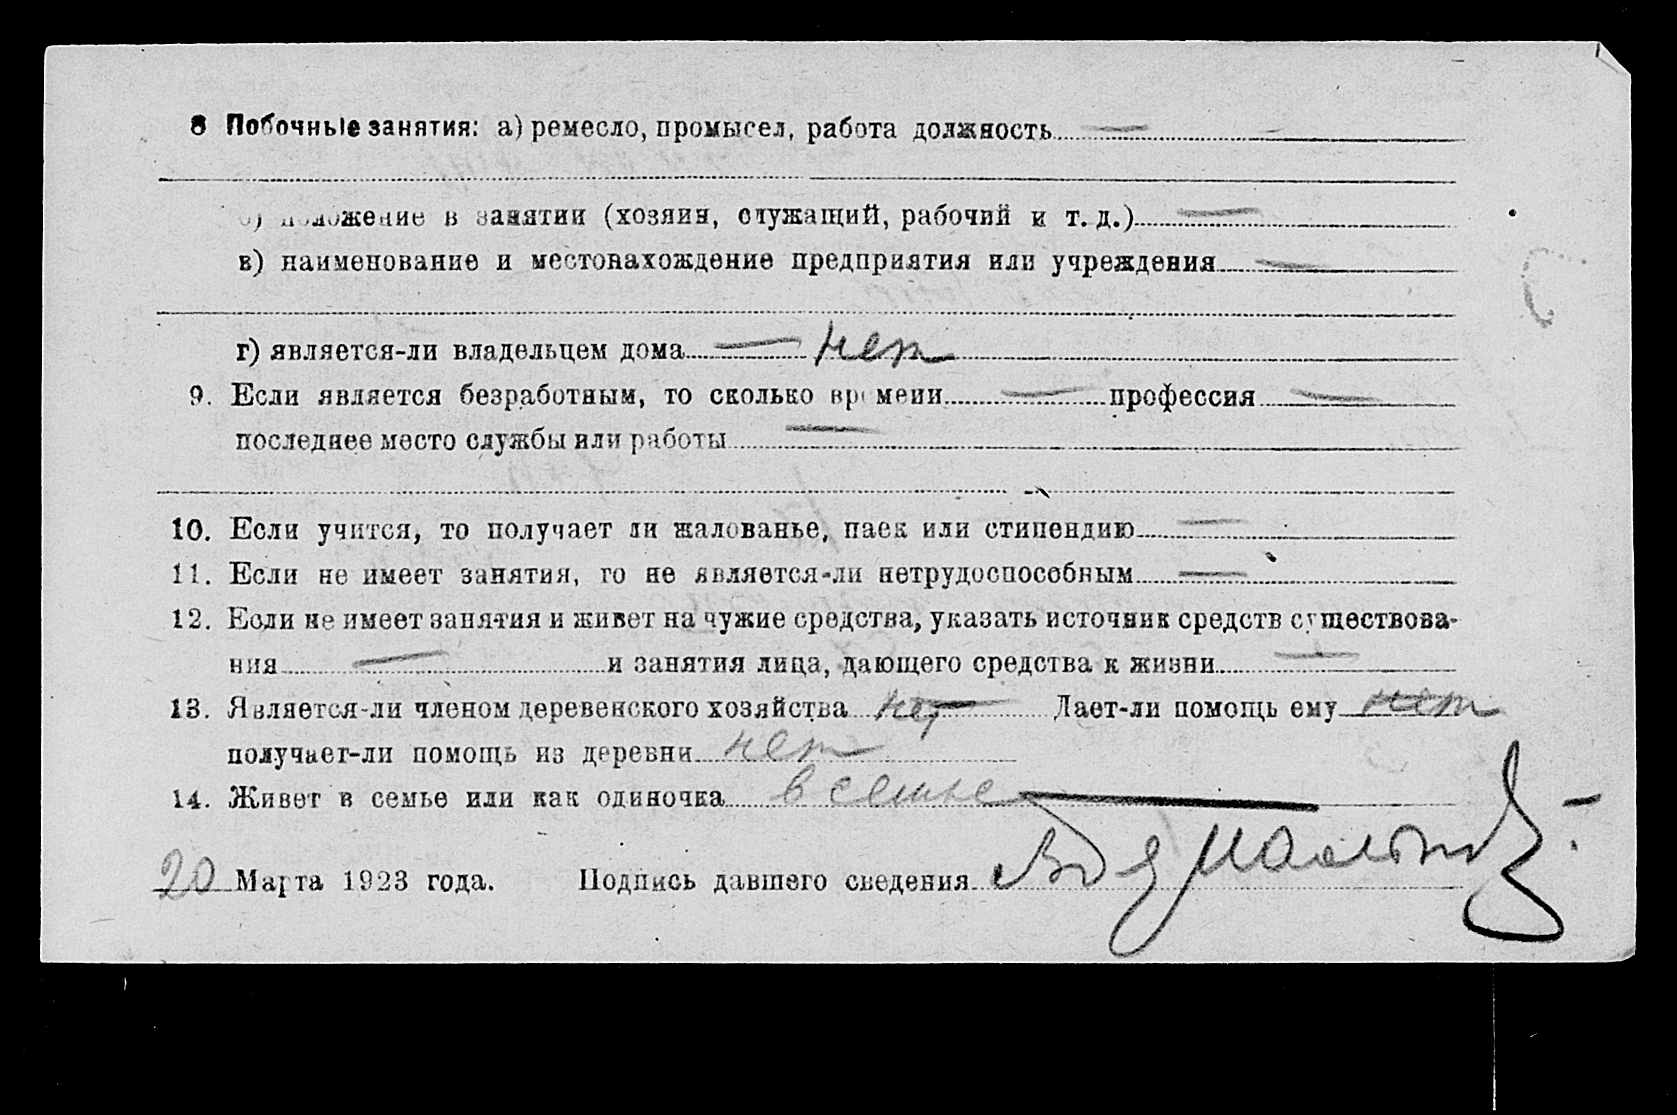 8 Побочные занятия: а) ремесло, промысел, работа должность —
б) положение в занятии (хозяин, служащий, рабочий и т. д.) —
в) наименование и местонахождение предприятия или учреждения —
г) является-ли владельцем дома — нет
9. Если является безработным, то сколько времени — профессия —
последнее место службы или работы —
10. Если учится, то получает ли жалованье, паек или стипендию —
11. Если не имеет занятия, то не является-ли нетрудоспособным —
12. Если не имеет занятия и живет на чужие средства, указать источник средств существова-
ния — и занятия лица, дающего средства к жизни —
13. Является-ли членом деревенского хозяйства нет Дает-ли помощь ему нет
получает-ли помощь из деревни нет
14. Живет в семье или как одиночка в семье
20 Марта 1923 года. Подпись давшего сведения